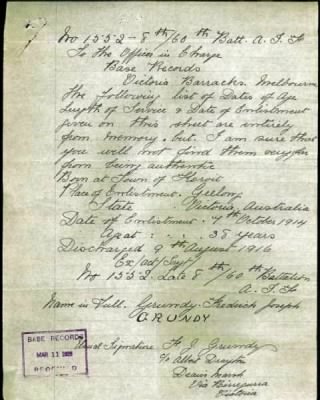 No 1552 - 8th/60th Batt. A.I.F
To the Officer in Charge
Base Records
Victoria Barracks. Melbourne
the following list of Dates of Age
Length of Service & Date of Enlistment
given on this sheet are entirely
from memory but. I am sure that
you will not find them very far
from being authentic
Born at Town of Koroit
Place of Enlistment. Geelong
State Victoria, Australia
Date of Enlistment. 7th October 1914
Age at : . . 38 years
Discharged 9th August 1916
Ex/
No 1552 Late 8th/60th Battalion
A.I.F
Name in Full. Grundy Fredrich Joseph
GRUNDY
BASE RECORDS
MAR 11
RECEIVED
Usual Signature F. J. Grundy
C/o Albert Drayton
Deans Marsh
Via Birregurra
Victoria